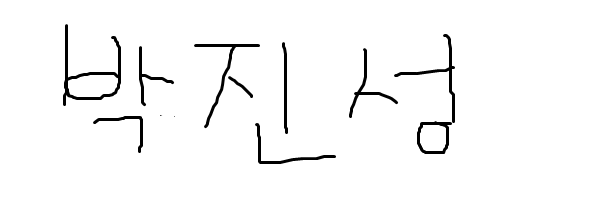 박진성